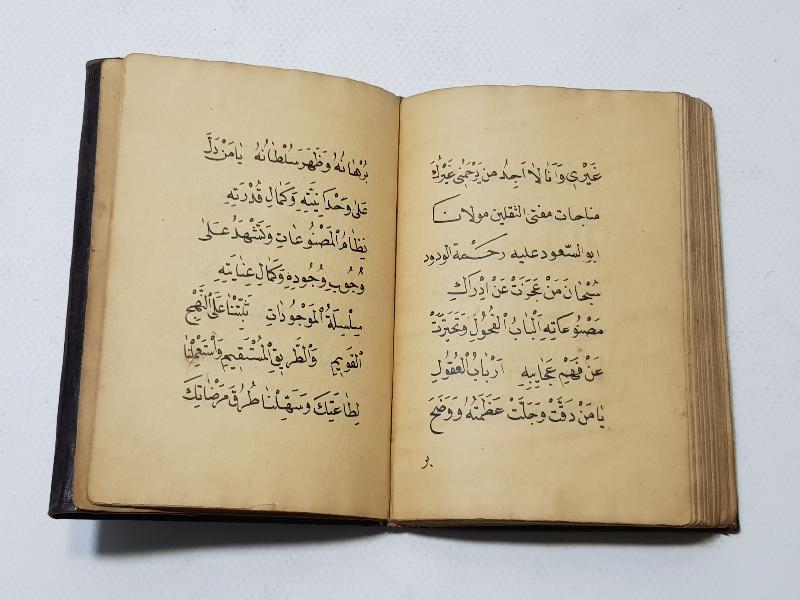 غَيْرِي وَاَنَا لَا اَجِدُ مَنْ يَرْحَمُنِي غَيْرُكَ
مناجات مفتى الثقلين مولانا
ابو السّعود عليه رحمة الودود
سُبْحَانَ مَنْ عَجَزَتْ عَنْ اِدْرَاكِ
مَصْنُوعَاتِهِ اَلْبَابُ الْفُحُولِ وَتَحَيَّرَتْ
عَنْ فَهْمِ عَجَايِبِهِ اَرْبَابُ الْعُقُولِ
يَا مَنْ دَقَّتْ وَجَلَّتْ عَظَمَتُهُ وَوَضَحَ
بر
بُرْهَانُهُ وَظَهَرَ سُلْطَانُهُ يَا مَنْ دَلَّ
عَلَى وَحْدَانِيَّتِهِ وَكَمَالِ قُدْرَتِهِ
نِظَامُ الْمَصْنُوعَاتِ وَتَشْهَدُ عَلَى
وُجُوبِ وُجُودِهِ وَكَمَالِ عِنَايَتِهِ
سِلْسِلَةُ الْمَوْجُودَاتِ ثَبِّتْنَا عَلَى النَّهْجِ
الْقَوِيمِ وَالطَّرِيقِ الْمُسْتَقِيمِ وَاسْتَعْمِلْنَا
لِطَاعَتِكَ وَسَهِّلْ لَنَا طُرُقَ مَرْضَاتِكَ